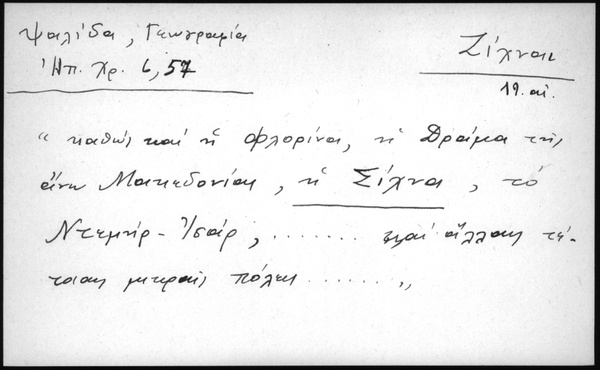 Ψαλίδα, Γεωγραφία
Ἠπ. Χρ. 6, 57
Ζίχναι
19. αἰ.
" καθὼς καὶ ἡ Φλορίνα, ἡ Δράμα τῆς
ἄνω Μακεδονίας, ἡ Σίχνα, τὸ
Ντεμὴρ-Ἱσάρ, ........ καὶ ἄλλαις τέ-
τοιαις μικραῖς πόλεις ........ "